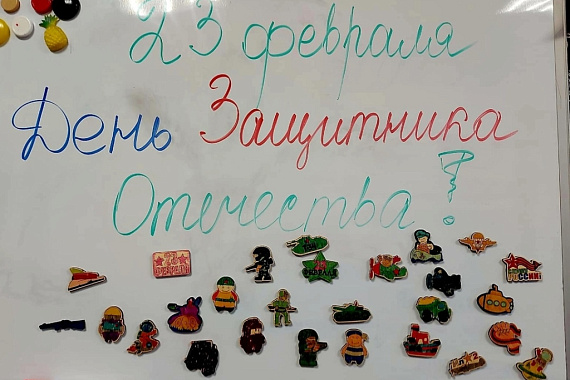 23 февраля
День Защитника
Отечества!
23
ФЕВРАЛЯ
ФЕВРАЛЯ
РОССИИ!